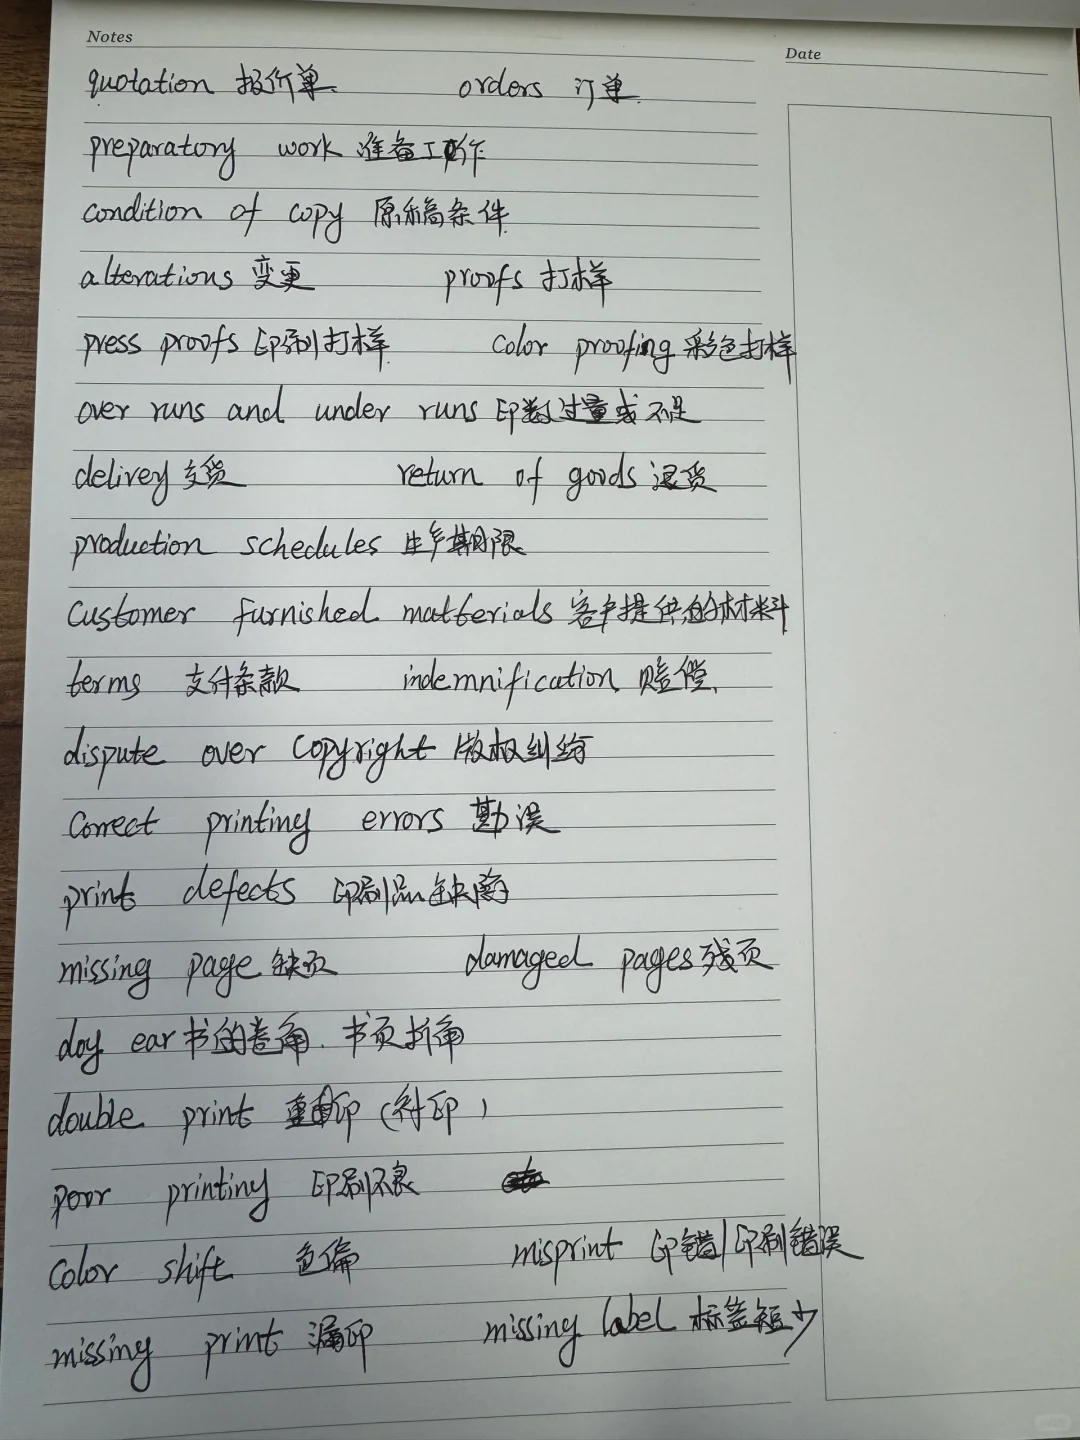 Notes
Date
quotation 报价单 orders 订单
preparatory work 准备工作
condition of copy 原稿条件
alterations 变更 proofs 打样
press proofs 印刷打样 color proofing 彩色打样
over runs and under runs 印数过量或不足
delivey 交货 return of goods 退货
production schedules 生产期限
customer furnished matterials 客户提供的材料
terms 支付条款 indemnification 赔偿
dispute over copyright 版权纠纷
Correct printing errors 勘误
print defects 印刷品缺陷
missing page 缺页 damaged pages 残页
dog ear 书的卷角. 书页折角
double print 重印 (衬印)
poor printing 印刷不良
color shift 色偏 misprint 印错/印刷错误
missing print 漏印 missing label 标签短少